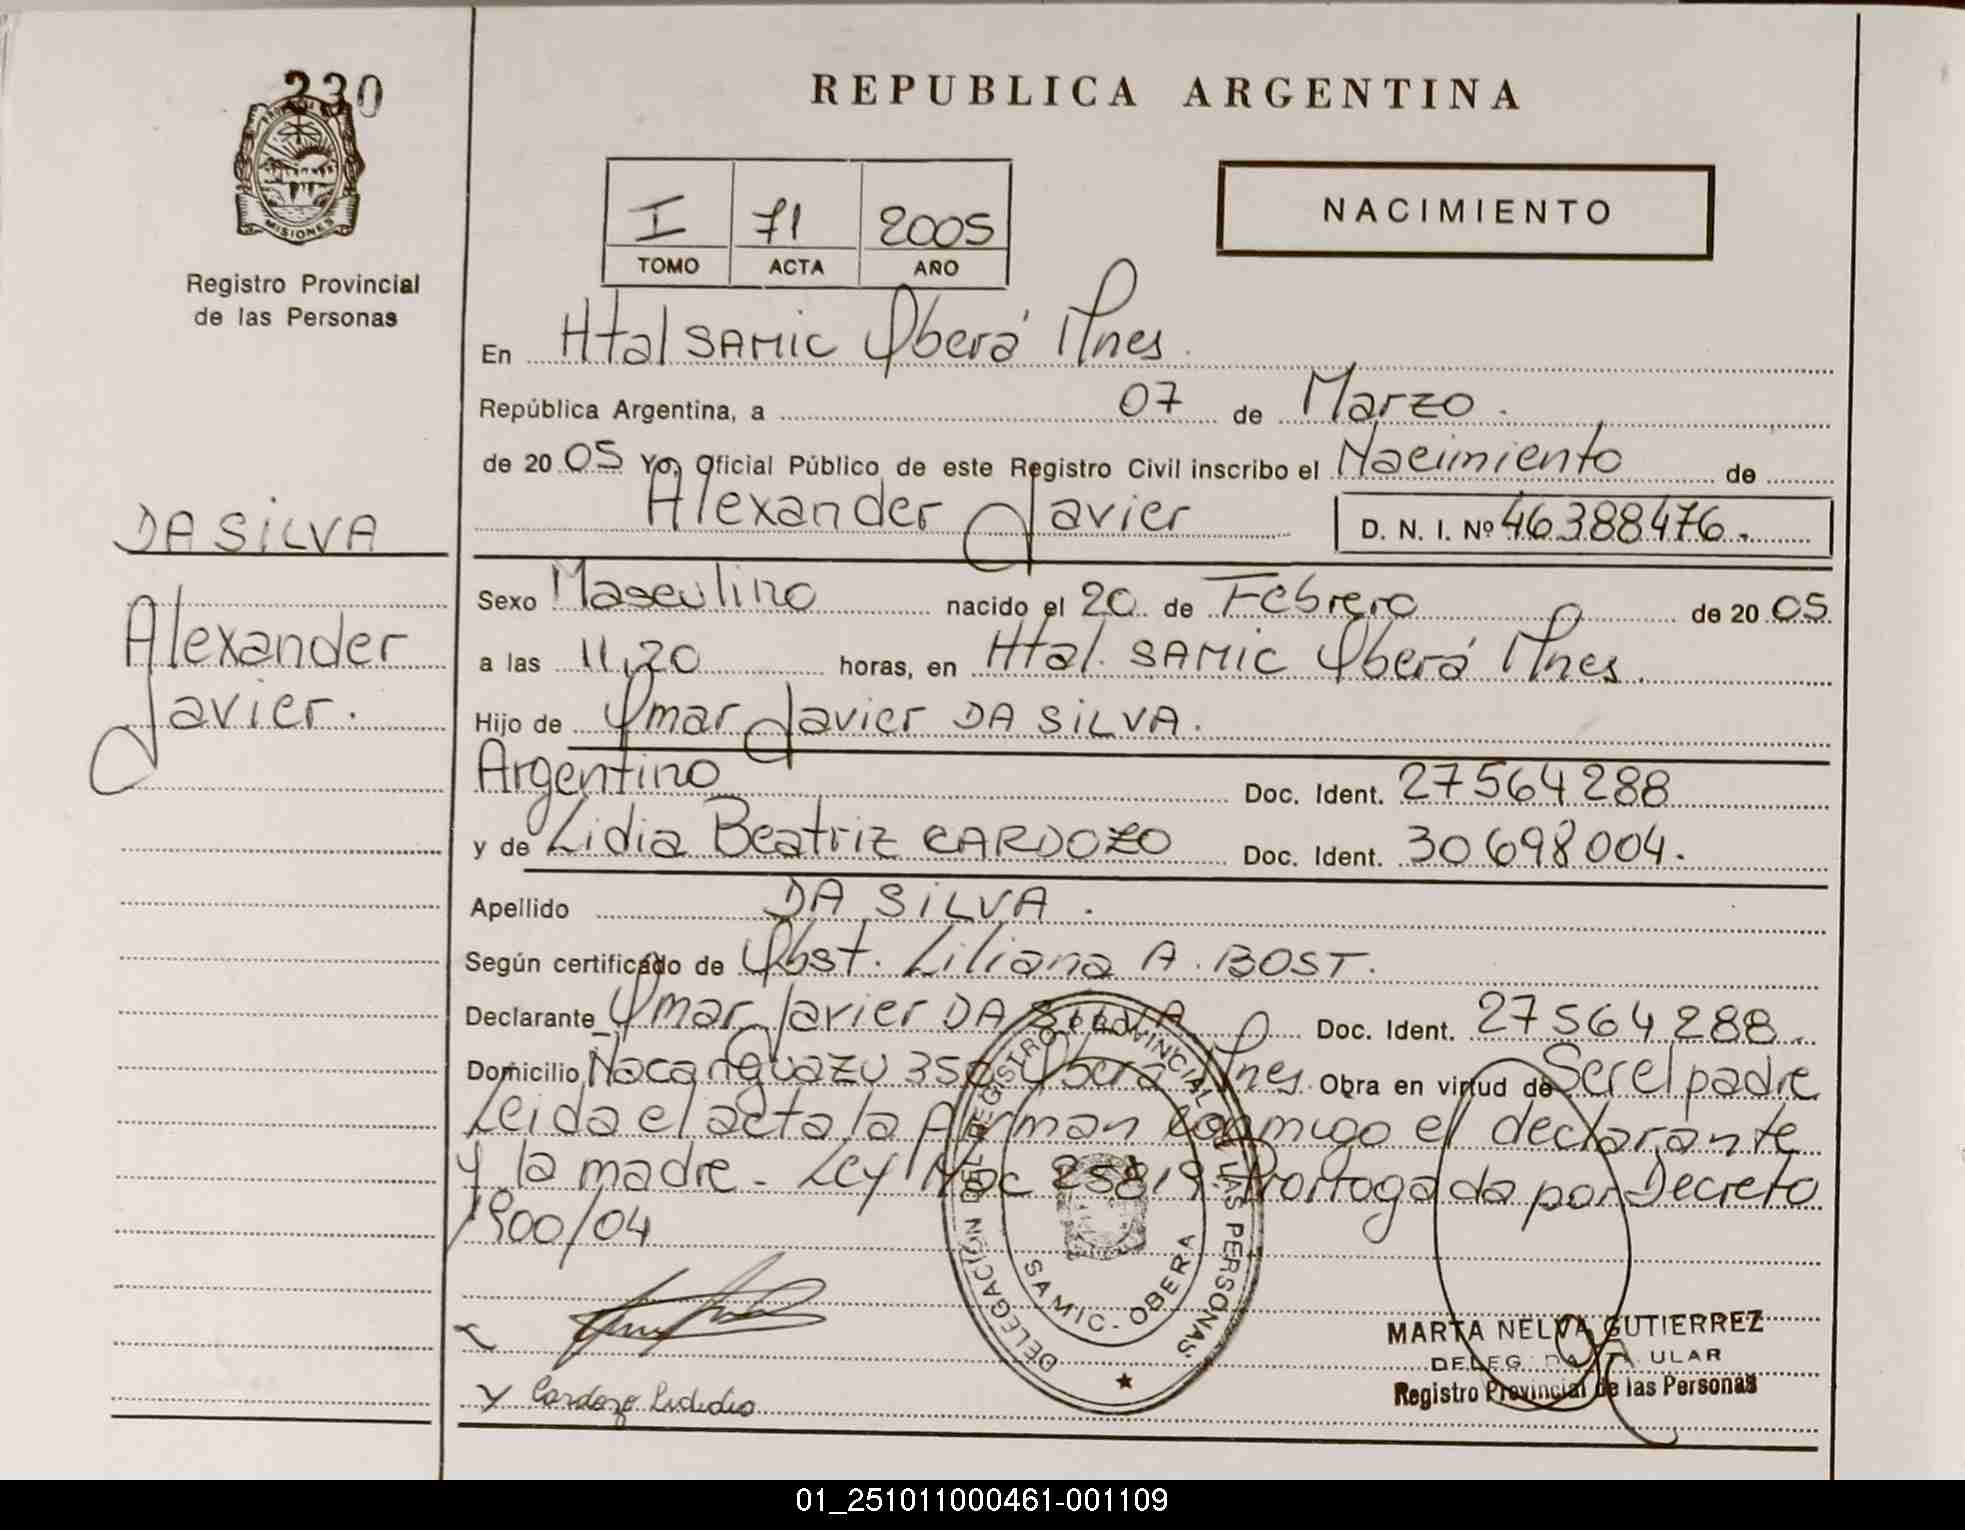 230
REPUBLICA ARGENTINA
MISIONES
Registro Provincial
de las Personas
I 71 2005
TOMO ACTA AÑO
NACIMIENTO
En Htal SAMIC Oberá Mnes.
República Argentina, a 07 de Marzo.
de 2005 Yo, Oficial Público de este Registro Civil inscribo el Nacimiento de
Alexander Javier D. N. I. Nº 46388476.
DA SILVA
Alexander
Javier.
Sexo Masculino nacido el 20 de Febrero de 2005.
a las 11,20 horas, en Htal. SAMIC Oberá Mnes.
Hijo de Omar Javier DA SILVA.
Argentino Doc. Ident. 27564288
y de Lidia Beatriz CARDOZO Doc. Ident. 30698004.
Apellido DA SILVA.
Según certificado de Obst. Liliana A. BOST.
Declarante Omar Javier DA SILVA Doc. Ident. 27564288.
Domicilio Ñacanguazu 350 Oberá Mnes. Obra en virtud de Ser el padre
Leida el acta la firman conmigo el declarante
y la madre - Ley Nac 25819 Prorrogada por Decreto
1900/04
DELEGACIÓN DEL REGISTRO PROVINCIAL DE LAS PERSONAS
SAMIC - OBERA
MARTA NELVA GUTIERREZ
Registro Provincial de las Personas
Cardozo
01_251011000461-001109